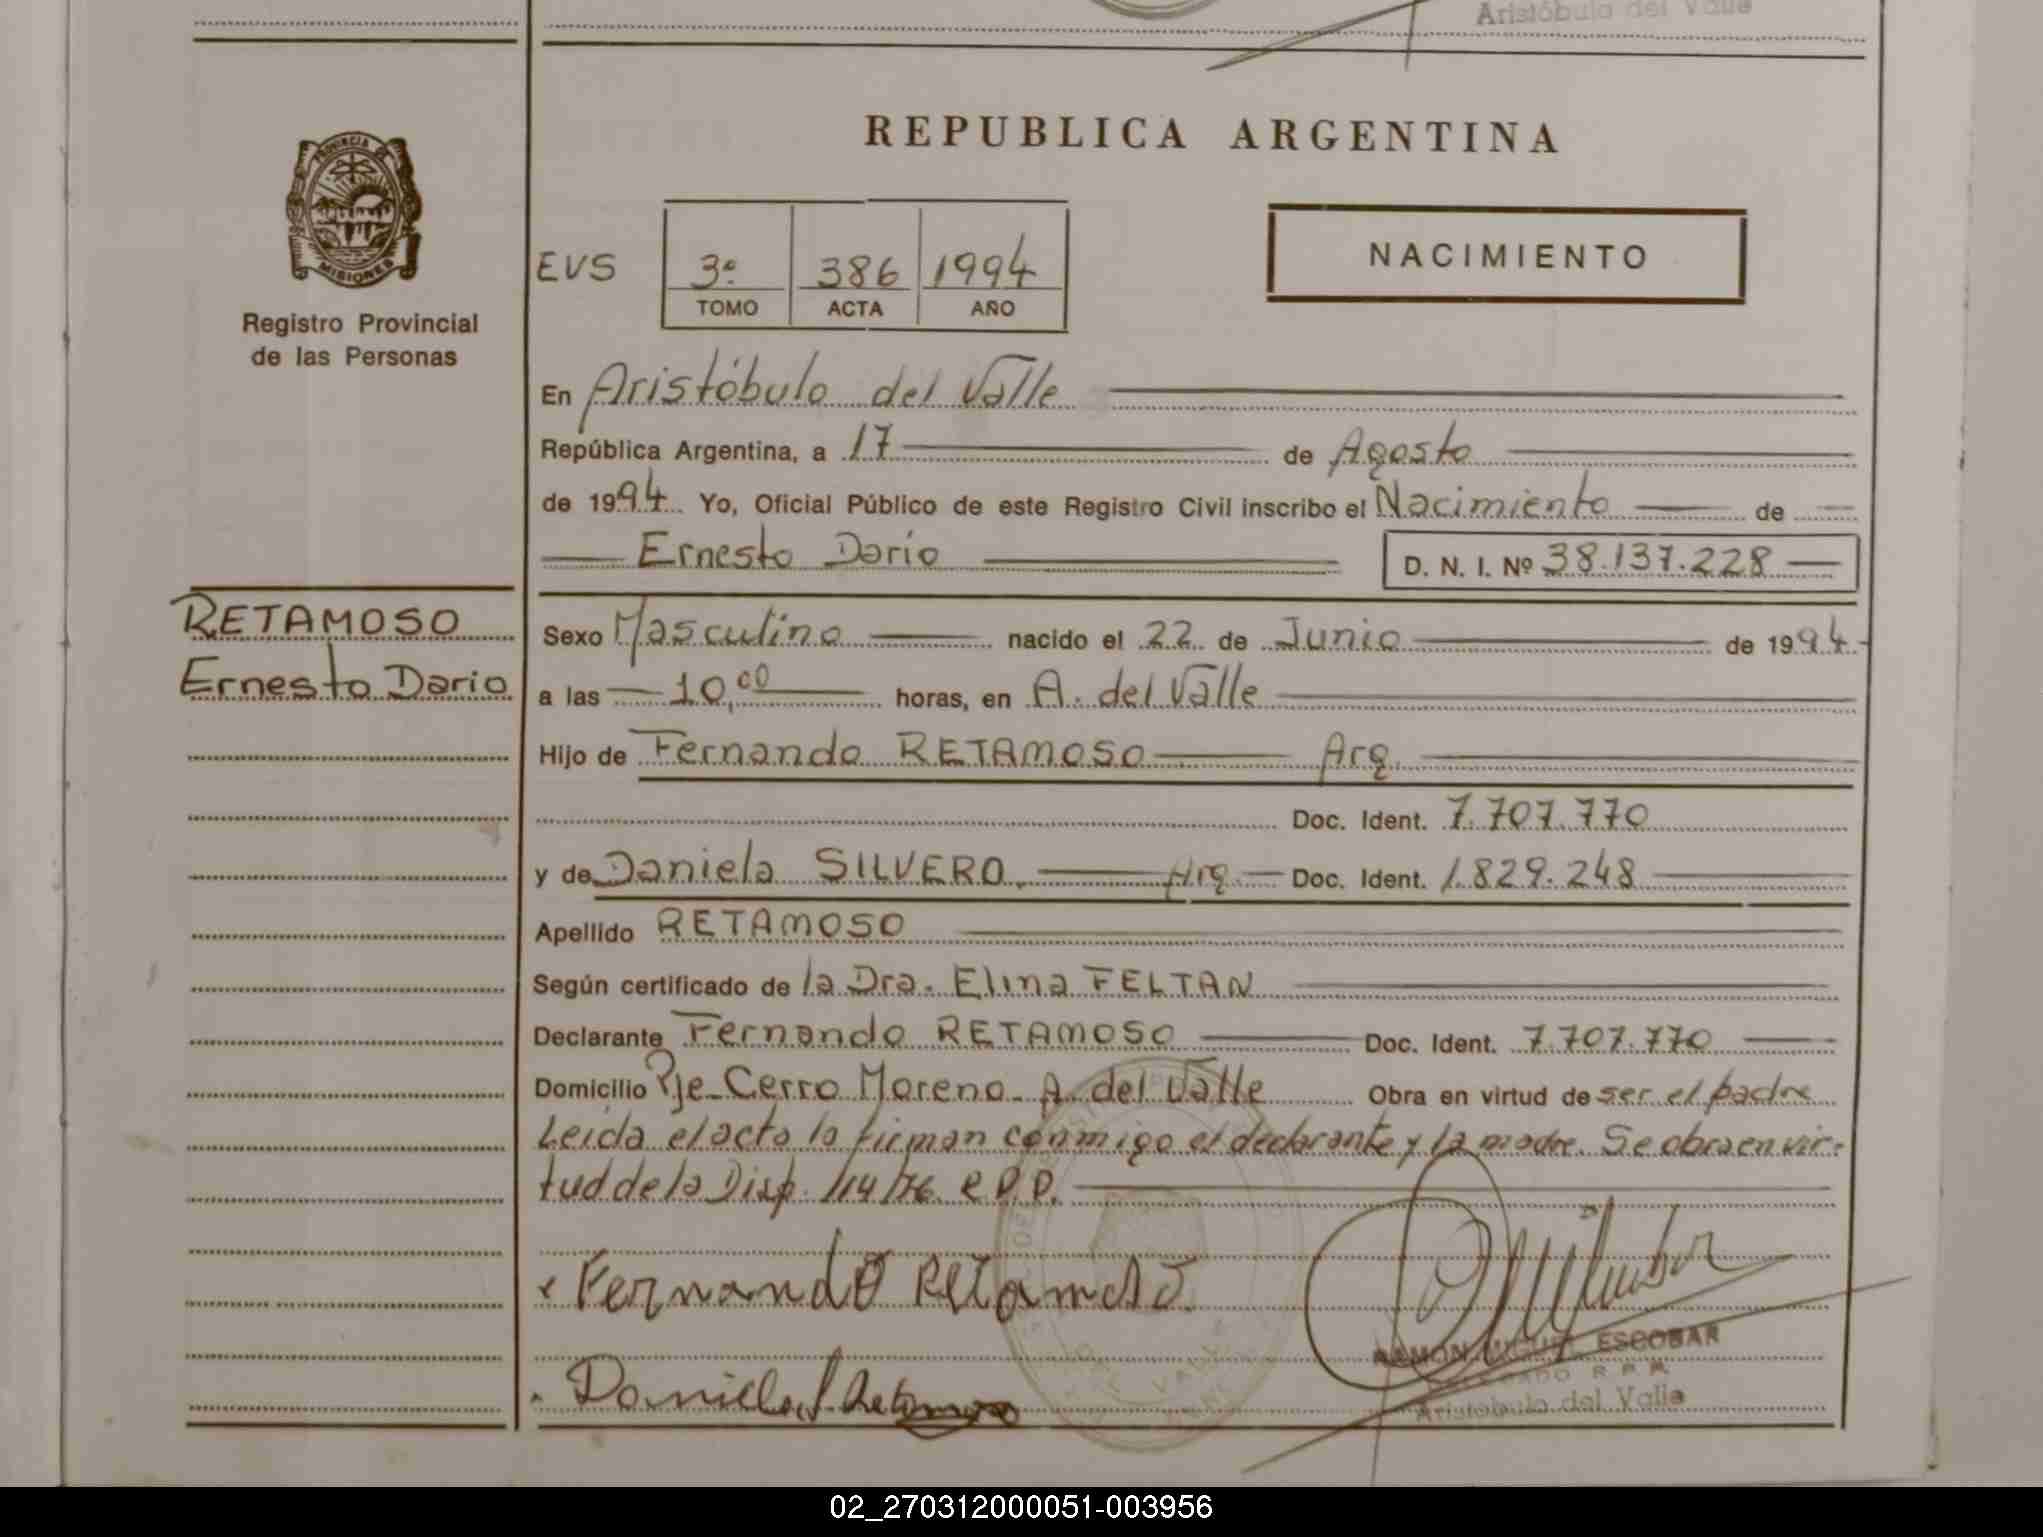 Aristóbulo del Valle
REPUBLICA ARGENTINA
PROVINCIA DE
MISIONES
Registro Provincial
de las Personas
EVS 3º 386 1994
TOMO ACTA AÑO
NACIMIENTO
En Aristóbulo del Valle
República Argentina, a 17 de Agosto
de 1994 Yo, Oficial Público de este Registro Civil inscribo el Nacimiento de
Ernesto Dario D. N. I. Nº 38.137.228
RETAMOSO
Ernesto Dario
Sexo Masculino nacido el 22 de Junio de 1994
a las 10,00 horas, en A. del Valle
Hijo de Fernando RETAMOSO Arg.
Doc. Ident. 7.707.770
y de Daniela SILVERO. Arg. Doc. Ident. 1.829.248
Apellido RETAMOSO
Según certificado de la Dra. Elina FELTAN
Declarante Fernando RETAMOSO Doc. Ident. 7.707.770
Domicilio Pje. Cerro Moreno - A. del Valle Obra en virtud de ser el padre
Leída el acta la firman conmigo el declarante y la madre. Se obra en vir-
tud de la Disp. 114/76 R.P.P.
Fernando Retamoso
Daniela S. Retamoso
RAMON MIGUEL ESCOBAR
DELEGADO R.P.P.
Aristóbulo del Valle
02_270312000051-003956